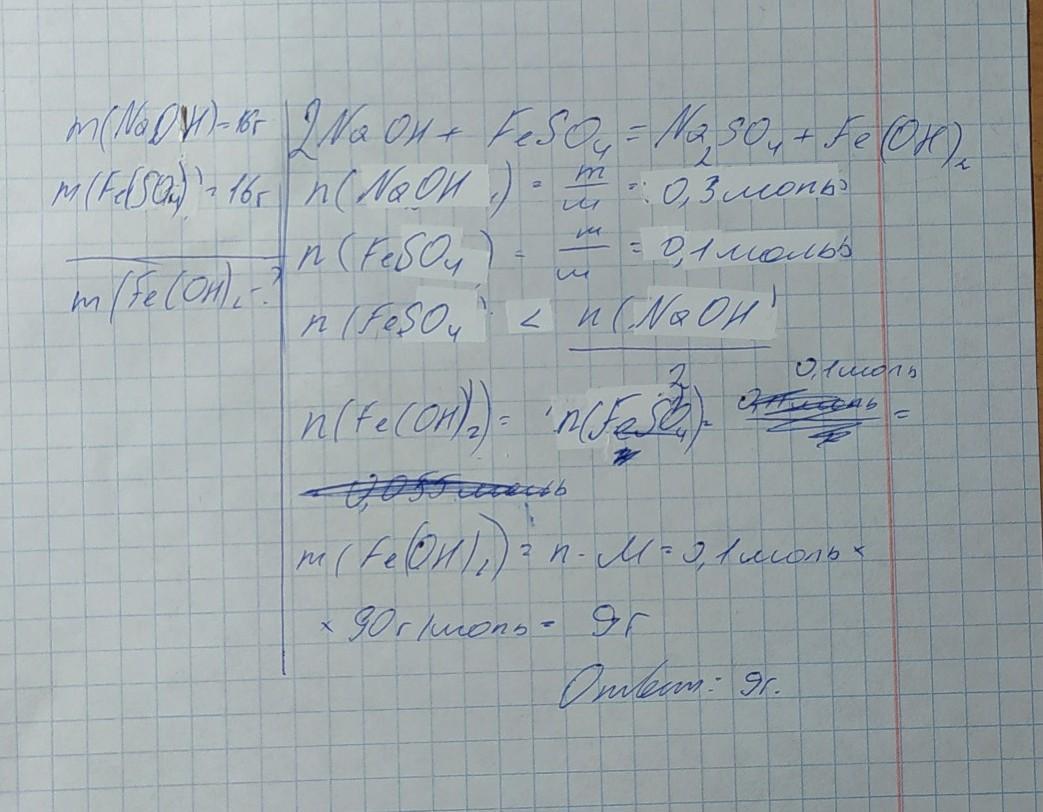 m(NaOH)=16г
m(Fe(SO₄)=16г
m(Fe(OH)₂-?
2NaOH + FeSO₄ = Na₂SO₄ + Fe(OH)₂
n(NaOH) = m/M = 0,3моль
n(FeSO₄) = m/M = 0,1моль
n(FeSO₄) < n(NaOH)/2
n(Fe(OH)₂) = n(FeSO₄) = 0,1моль =
0,055 моль
m(Fe(OH)₂) = n · M = 0,1моль ×
× 90г/моль = 9г
Ответ: 9г.